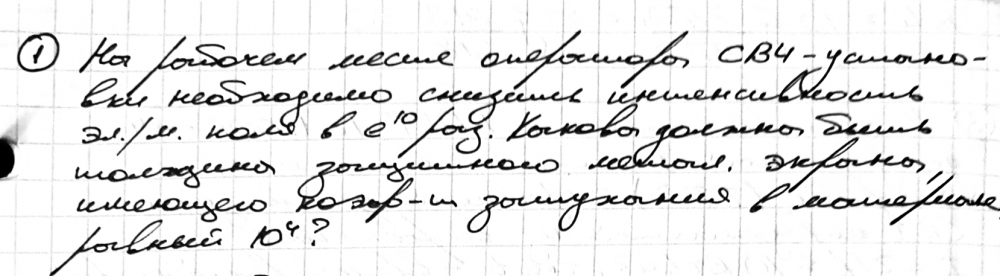 ① На рабочем месте оператора СВЧ-установ-
вки необходимо снизить интенсивность
эл./м. поля в e¹⁰ раз. Какова должна быть
толщина защитного метал. экрана,
имеющего коэф-т затухания в материале
равный 10⁴?